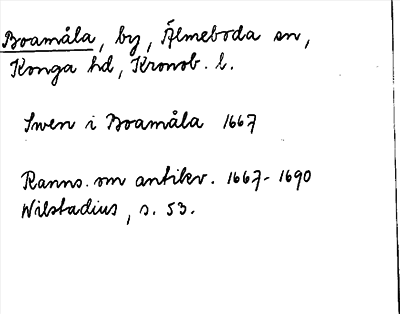 Boamåla, by, Älmeboda sn,
Konga hd, Kronob. l.
Swen i Boamåla 1667
Ranns. om antikv. 1667-1690
Wilstadius, s. 53.